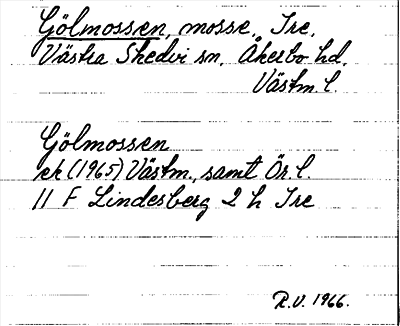 Gölmossen, mosse, Tre,
Västra Skedvi sn, Åkerbo hd,
Västm. l.
Gölmossen
ek (1965) Västm., samt Ör. l.
11 F Lindesberg 2 h Tre
R.V. 1966.